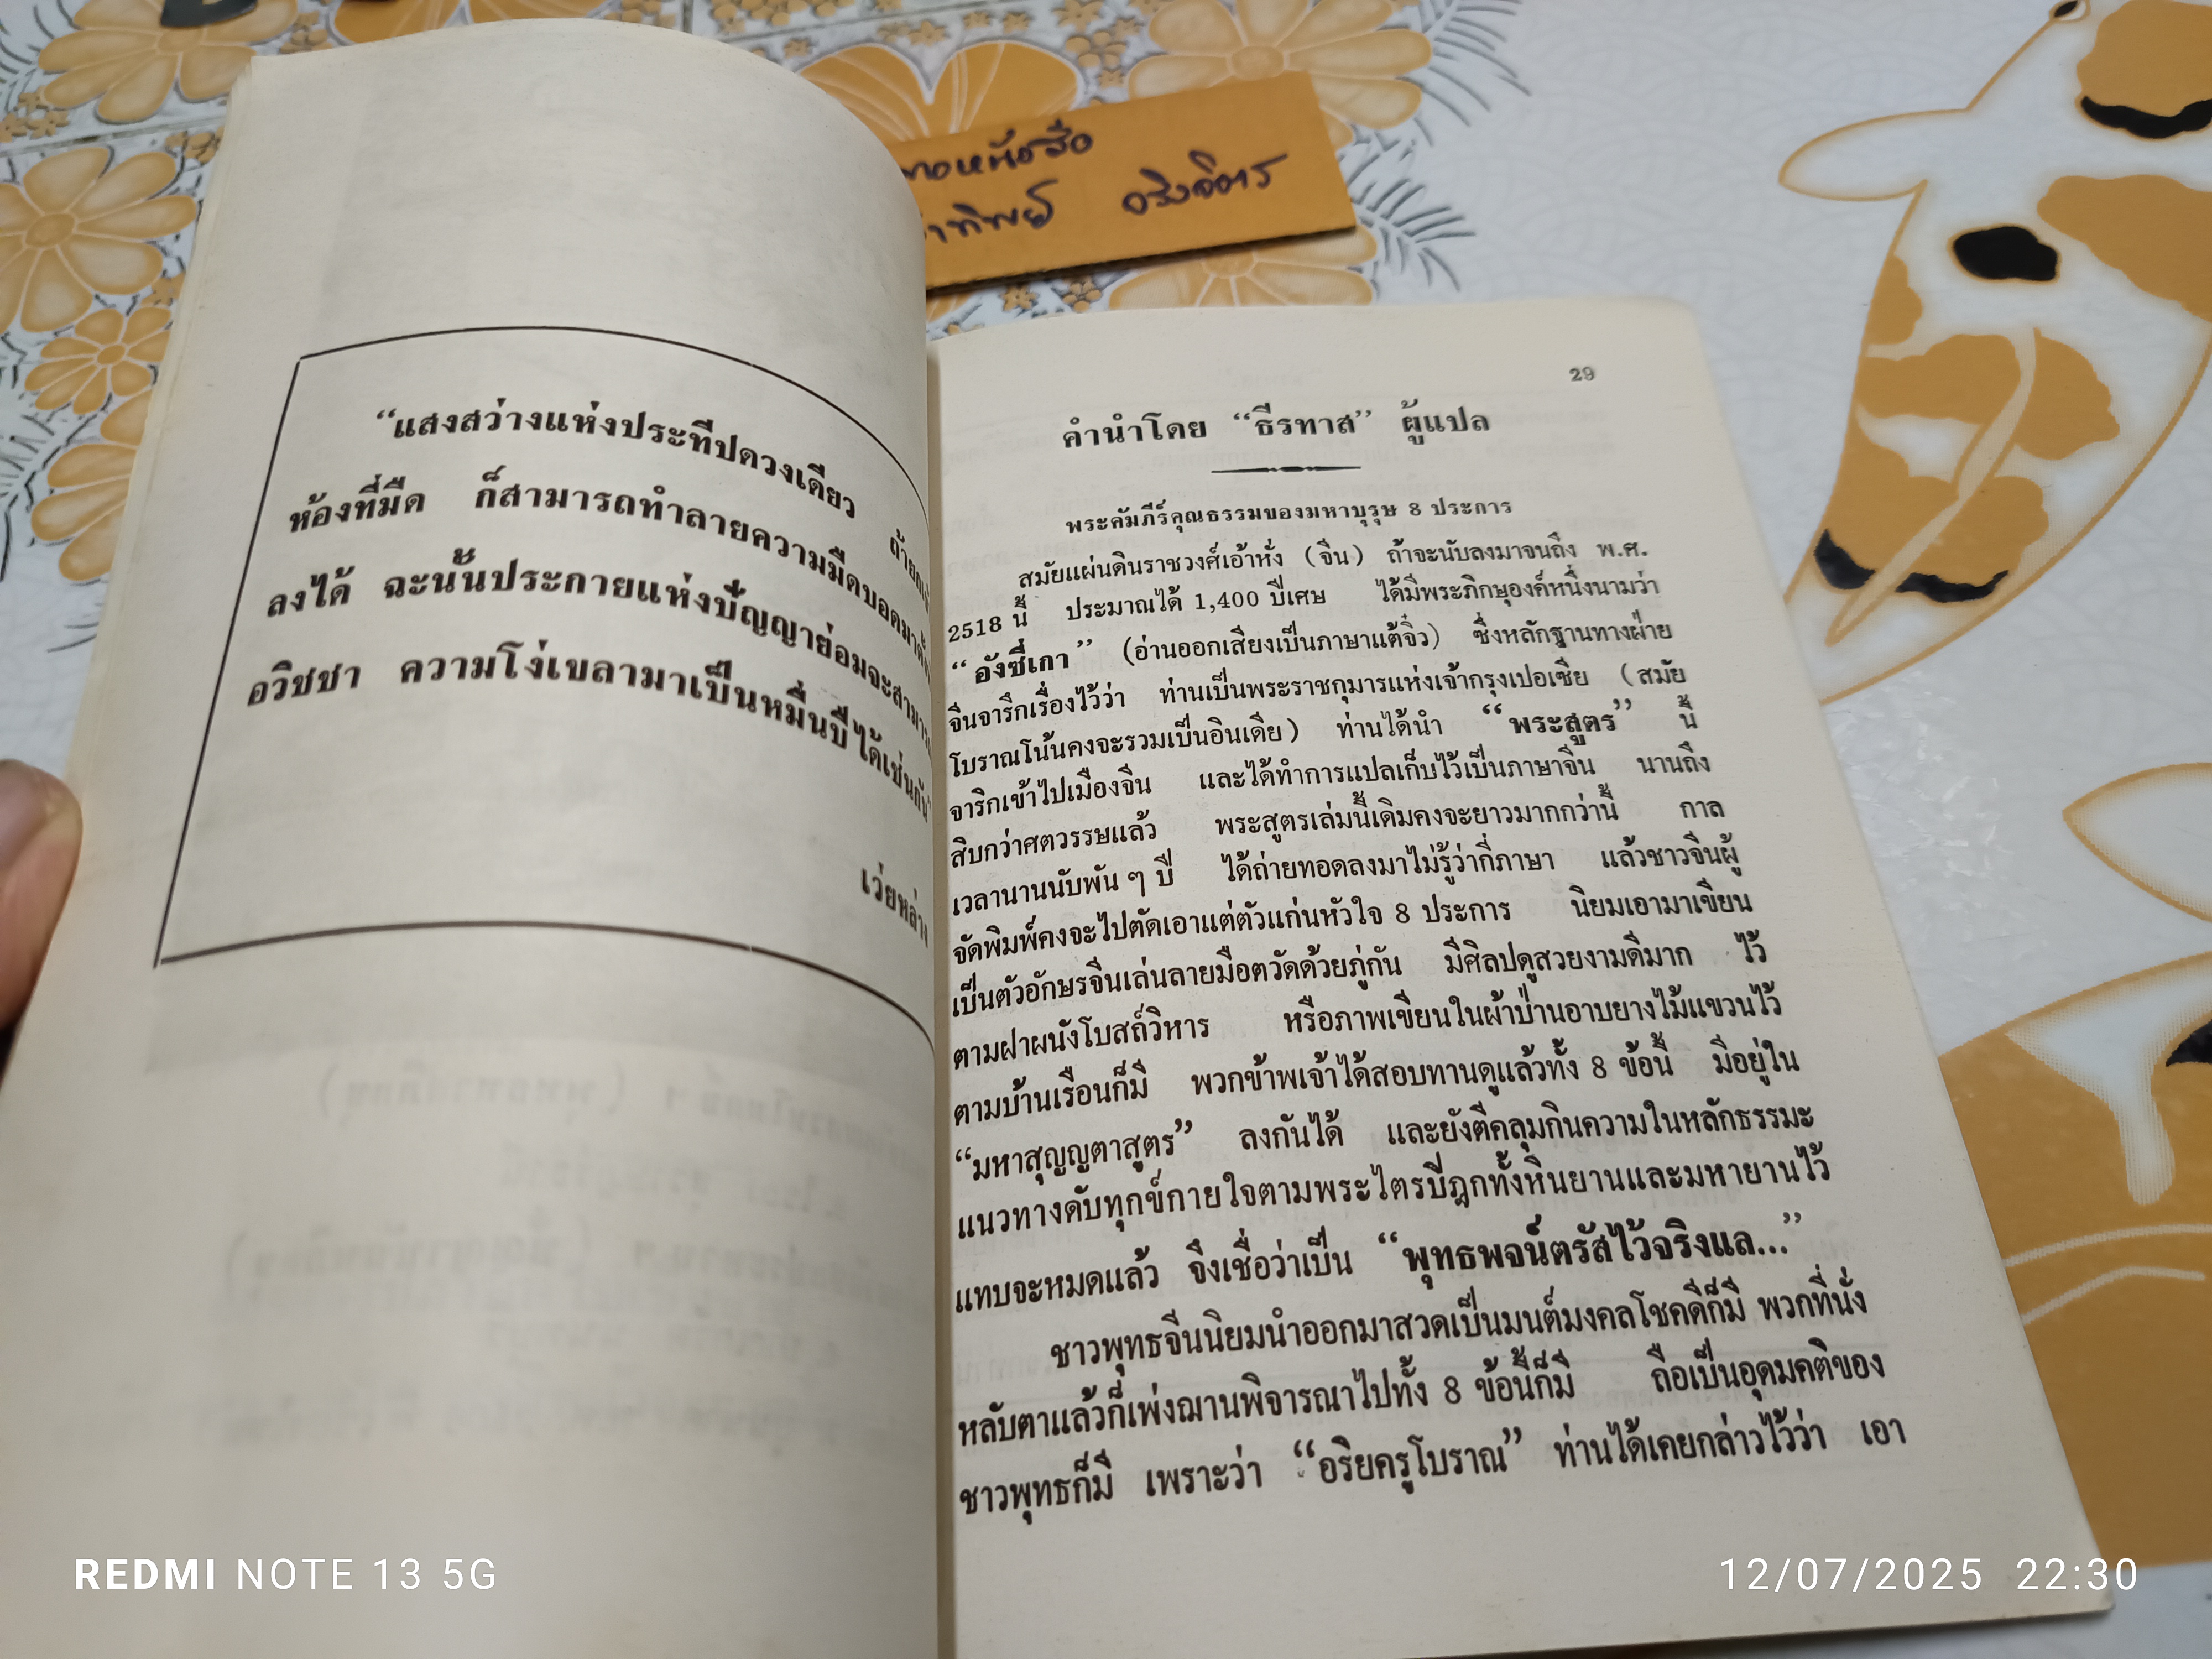 หนังสือ
ทิพย์ อริงจิตร
“แสงสว่างแห่งประทีปดวงเดียว
ห้องที่มืด ก็สามารถทำลายความมืดบอดมา
ลงได้ ฉะนั้นประกายแห่งปัญญาย่อมจะสามารถ
อวิชชา ความโง่เขลามาเป็นหมื่นปีได้เช่นกัน
เว่ยหล่าง
29
คำนำโดย “ธีรทาส” ผู้แปล
พระคัมภีร์คุณธรรมของมหาบุรุษ 8 ประการ
สมัยแผ่นดินราชวงศ์เอ้าหั่ง (จีน) ถ้าจะนับลงมาจนถึง พ.ศ.
2518 นี้ ประมาณได้ 1,400 ปีเศษ ได้มีพระภิกษุองค์หนึ่งนามว่า
“อังซี่เกา” (อ่านออกเสียงเป็นภาษาแต้จิ๋ว) ซึ่งหลักฐานทางฝ่าย
จีนจารึกเรื่องไว้ว่า ท่านเป็นพระราชกุมารแห่งเจ้ากรุงเปอเซีย (สมัย
โบราณโน้นคงจะรวมเป็นอินเดีย) ท่านได้นำ “พระสูตร” นี้
จาริกเข้าไปเมืองจีน และได้ทำการแปลเก็บไว้เป็นภาษาจีน นานถึง
สิบกว่าศตวรรษแล้ว พระสูตรเล่มนี้เดิมคงจะยาวมากกว่านี้ กาล
เวลานานนับพัน ๆ ปี ได้ถ่ายทอดลงมาไม่รู้ว่ากี่ภาษา แล้วชาวจีนผู้
จัดพิมพ์คงจะไปตัดเอาแต่ตัวแก่นหัวใจ 8 ประการ นิยมเอามาเขียน
เป็นตัวอักษรจีนเล่นลายมือตวัดด้วยภู่กัน มีศิลปดูสวยงามดีมาก ไว้
ตามฝาผนังโบสถ์วิหาร หรือภาพเขียนในผ้าป่านอาบยางไม้แขวนไว้
ตามบ้านเรือนก็มี พวกข้าพเจ้าได้สอบทานดูแล้วทั้ง 8 ข้อนี้ มีอยู่ใน
“มหาสุญญตาสูตร” ลงกันได้ และยังตีคลุมกินความในหลักธรรมะ
แนวทางดับทุกข์กายใจตามพระไตรปิฎกทั้งหินยานและมหายานไว้
แทบจะหมดแล้ว จึงเชื่อว่าเป็น “พุทธพจน์ตรัสไว้จริงแล...”
ชาวพุทธจีนนิยมนำออกมาสวดเป็นมนต์มงคลโชคดีก็มี พวกที่นั่ง
หลับตาแล้วก็เพ่งฌานพิจารณาไปทั้ง 8 ข้อนี้ก็มี ถือเป็นอุดมคติของ
ชาวพุทธก็มี เพราะว่า “อริยครูโบราณ” ท่านได้เคยกล่าวไว้ว่า เอา
REDMI NOTE 13 5G
12/07/2025 22:30